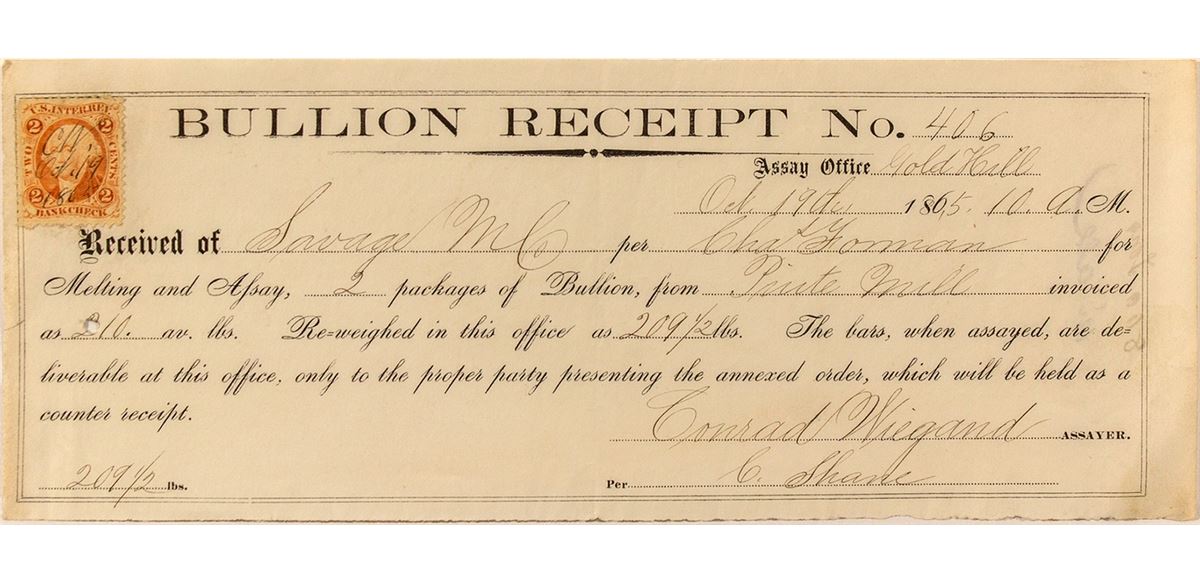 U.S. INTER. REV.
2 2
TWO CENTS
Oct 19
186
2 2
BANK CHECK
BULLION RECEIPT No. 406
Assay Office Gold Hill
Oct. 19th 1865. 10. a. M.
Received of Savage M C per Chas Forman for
Melting and Assay, 2 packages of Bullion, from Piute Mill invoiced
as 210. av. lbs. Re=weighed in this office as 209 1/2 lbs. The bars, when assayed, are de=
liverable at this office, only to the proper party presenting the annexed order, which will be held as a
counter receipt.
Conrad Wiegand ASSAYER.
209 1/2 lbs.
Per C. Shane